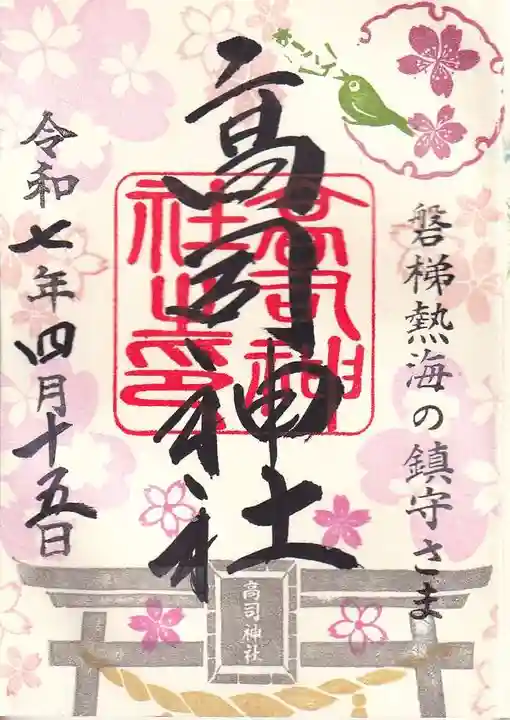 ホーホケキョ
磐梯熱海の鎮守さま
高司神社
高司神社之印
令和七年四月十五日
高司神社